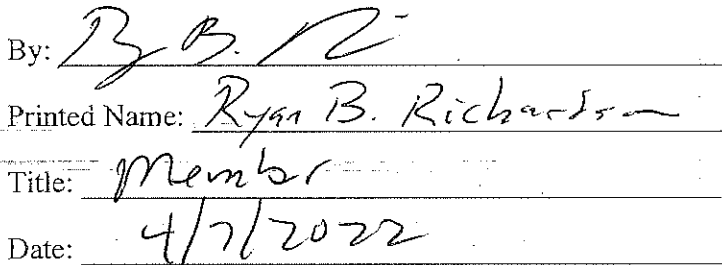 By:
Printed Name: Ryan B. Richardson
Title: Member
Date: 4/7/2022